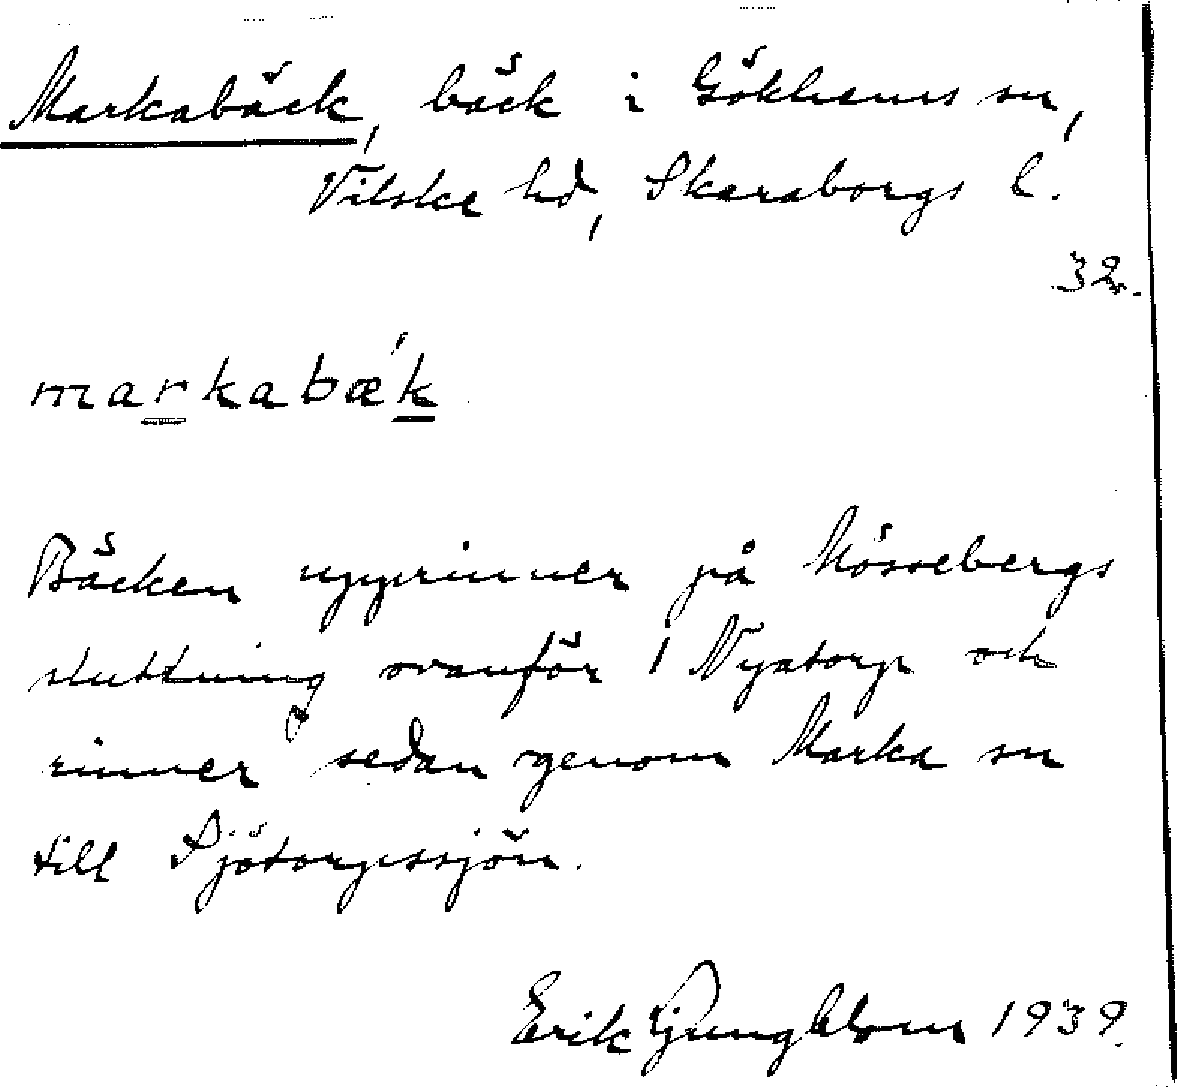 Markabäck, bäck i Gökhems sn,
Vilske hd, Skaraborgs l.
32.
markabæ´k
Bäcken upprinner på Mössebergs
sluttning ovanför 1 Nyatorp och
rinner sedan genom Marka sn
till Sjötorpssjön.
Erik Ljungblom 1939.